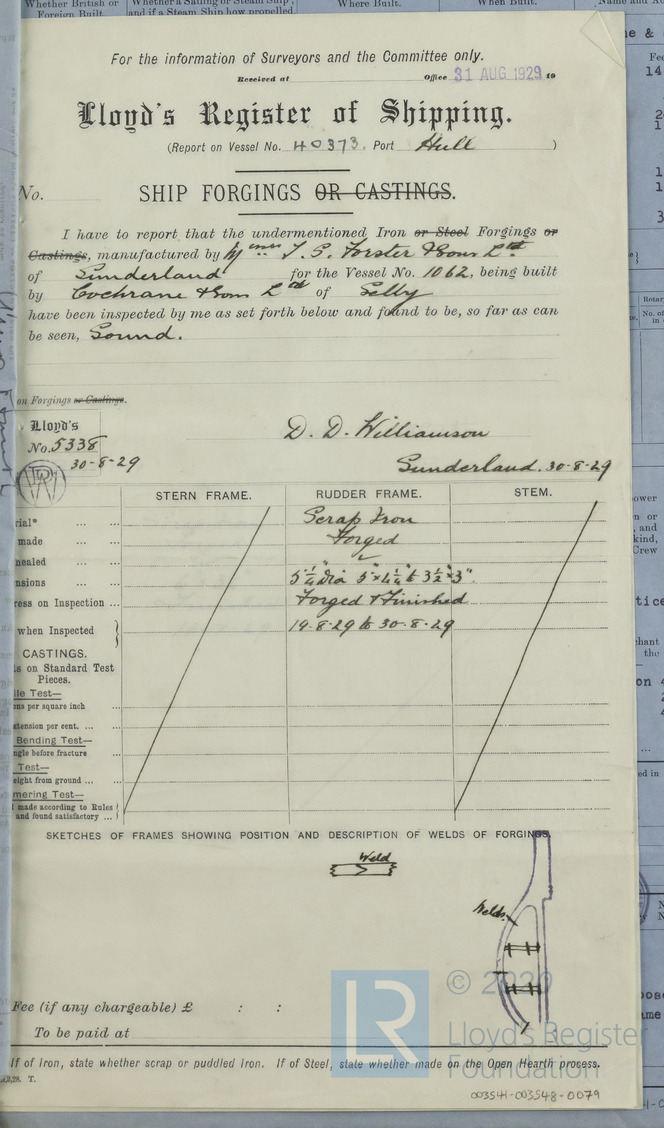 Whether British or Foreign Built.
Whether a Sailing or Steam Ship, and if a Steam Ship how propelled
Where Built.
When Built.
For the information of Surveyors and the Committee only.
Received at Office 31 AUG 1929 19
Lloyd's Register of Shipping.
(Report on Vessel No. 40373. Port Hull )
No. SHIP FORGINGS OR CASTINGS.
I have to report that the undermentioned Iron or Steel Forgings or
Castings, manufactured by Messrs T. S. Forster & Sons Ltd.
of Sunderland for the Vessel No. 1062, being built
by Cochrane & Sons Ltd of Selby
have been inspected by me as set forth below and found to be, so far as can
be seen, Sound.
on Forgings or Castings.
Lloyd's
No. 5338
30-8-29
D. D. Williamson
Sunderland. 30-8-29
STERN FRAME. RUDDER FRAME. STEM.
rial* ... ... Scrap Iron
made ... ... Forged
nealed ... ...
nsions ... ... 5¼" dia 5"×4¼" to 3½"×3".
ress on Inspection ... Forged & Finished
when Inspected 19-8-29 to 30-8-29
CASTINGS.
ts on Standard Test
Pieces.
ile Test—
ons per square inch ...
xtension per cent. ... ...
Bending Test—
ngle before fracture ...
Test—
eight from ground ... ...
mering Test—
made according to Rules
and found satisfactory ...
SKETCHES OF FRAMES SHOWING POSITION AND DESCRIPTION OF WELDS OF FORGINGS.
Weld
Welds.
Fee (if any chargeable) £ : :
To be paid at
If of Iron, state whether scrap or puddled Iron. If of Steel, state whether made on the Open Hearth process.
© 2020
LR
Lloyd's Register
Foundation
003541-003548-0079